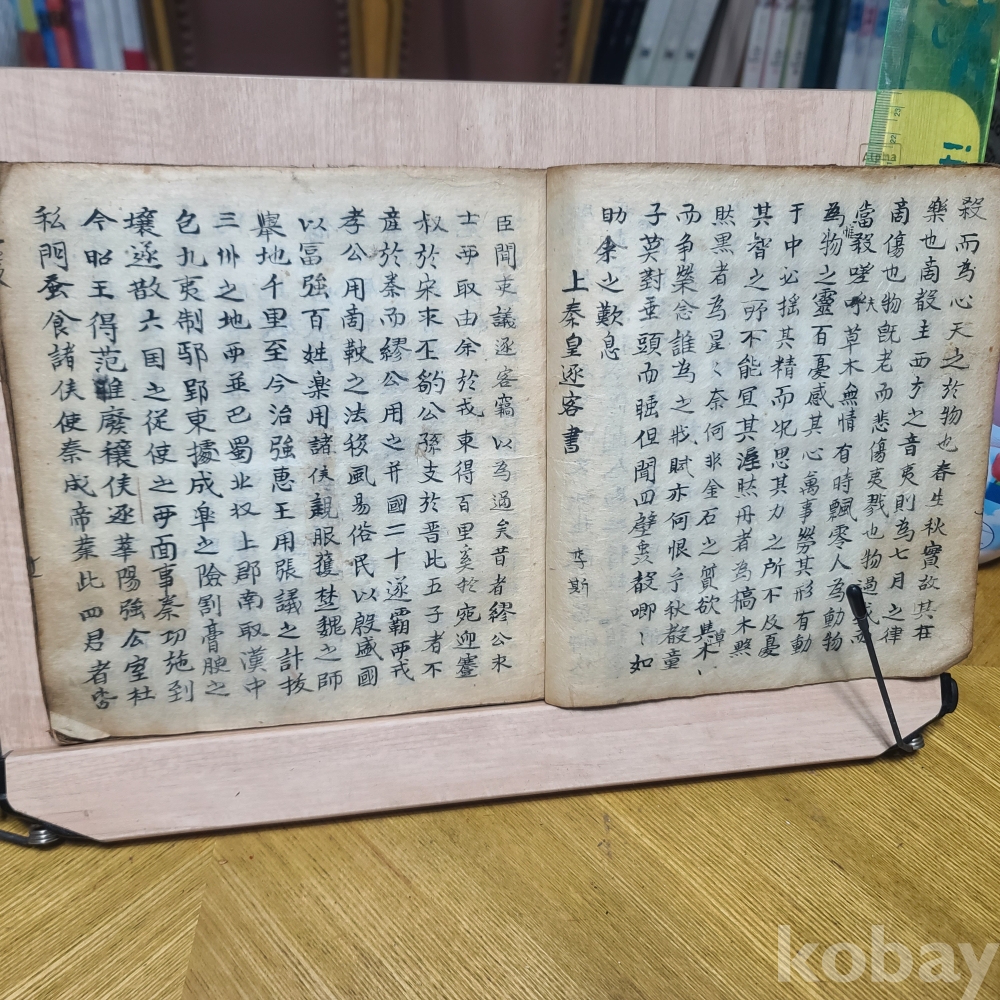 殺而為心天之於物也春生秋實故其在
樂也商殸主西方之音夷則為七月之律
商傷也物旣老而悲傷夷戮也物過盛而
當殺嗟呼草木無情有時飄零人為動物
為物之靈百憂感其心萬事勞其形有動
于中必揺其精而况思其力之所不及憂
其智之所不能宜其渥然丹者為槁木黟
然黑者為星〻奈何非金石之質欲與草木
而爭榮念誰為之戕賊亦何恨乎秋殸童
子莫對垂頭而睡但聞四壁虫殸喞〻如
助余之歎息
上秦皇逐客書 李斯
臣聞吏議逐客竊以為過矣昔者繆公求
士西取由余於戎東得百里奚於宛迎蹇
叔於宋求丕豹公孫支於晋此五子者不
産於秦而繆公用之并國二十遂霸西戎
孝公用商鞅之法移風易俗民以殷盛國
以富強百姓楽用諸侯親服獲楚魏之師
擧地千里至今治強惠王用張議之計拔
三川之地西並巴蜀北収上郡南取漢中
包九夷制鄢郢東據成皐之險割膏腴之
壤遂散六国之從使之西面事秦功施到
今昭王得范雎廢穰侯逐華陽強公室杜
私門蚕食諸侯使秦成帝業此四君者皆
kobay